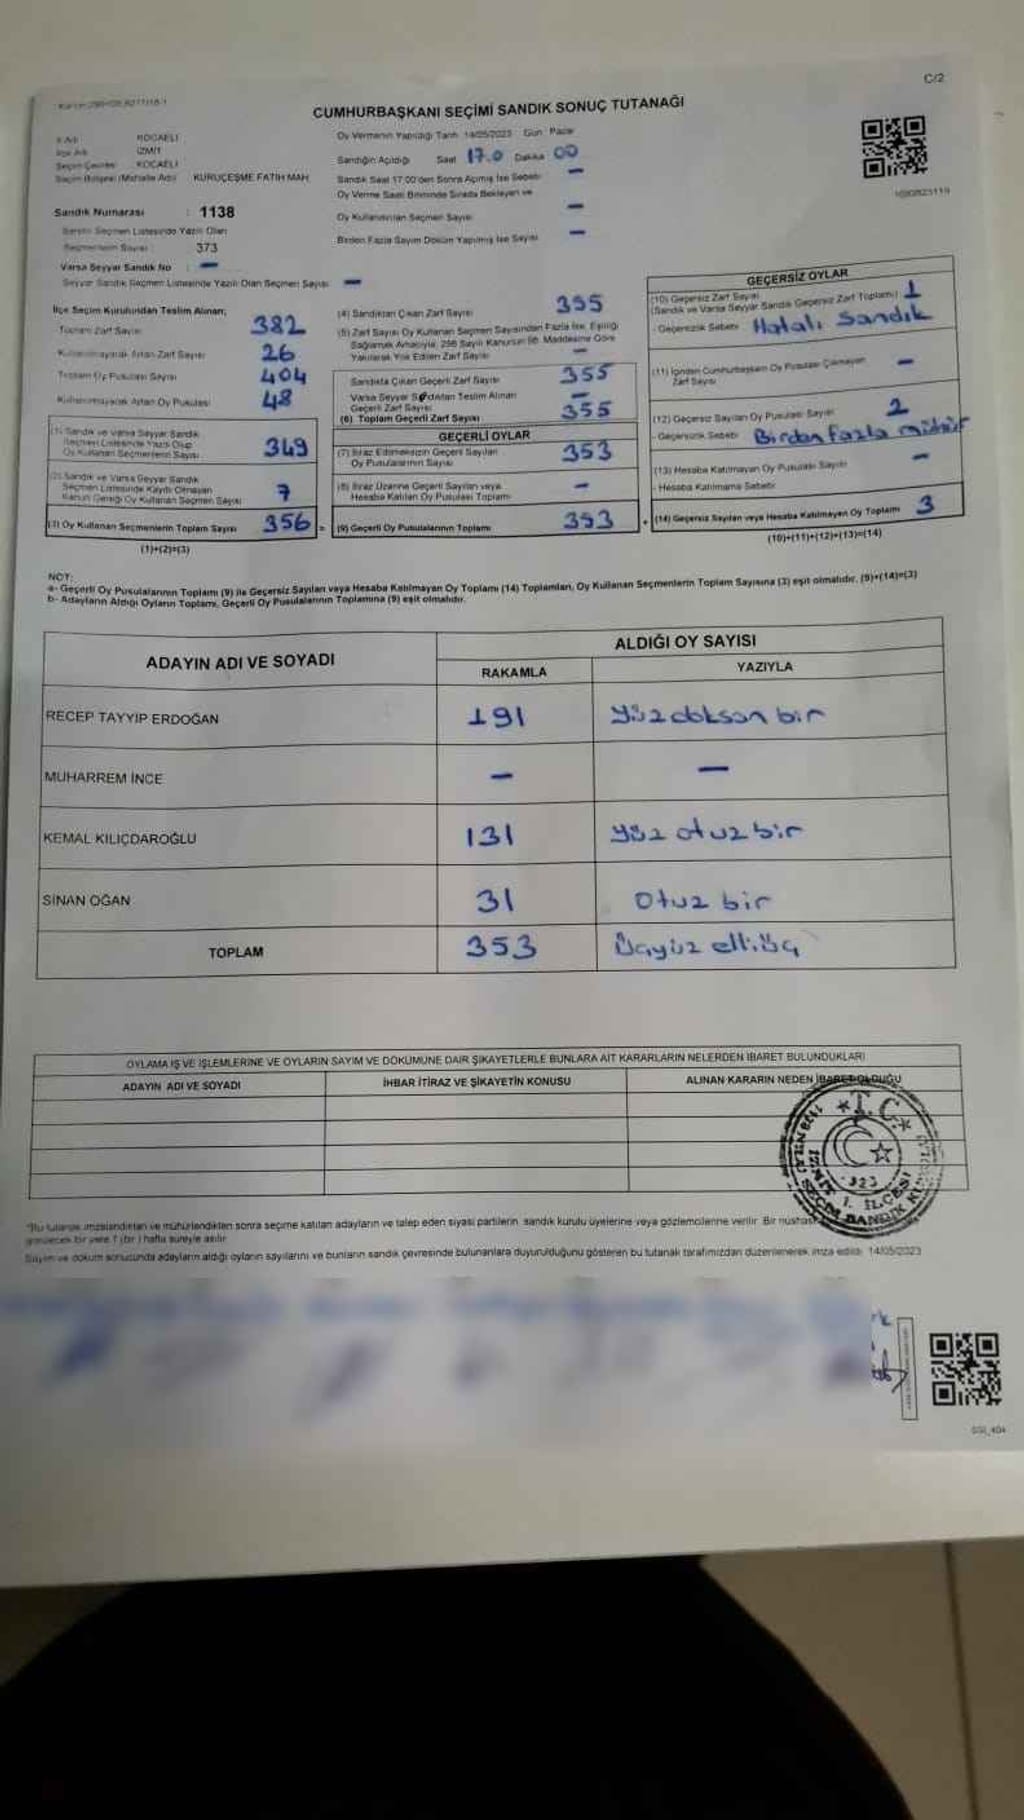 C/2
CUMHURBAŞKANI SEÇİMİ SANDIK SONUÇ TUTANAĞI
İl Adı KOCAELİ
İlçe Adı İZMİT
Seçim Çevresi KOCAELİ
Seçim Bölgesi (Mahalle Adı) KURUÇEŞME FATİH MAH
Sandık Numarası : 1138
Seçmenlerin Sayısı 373
Varsa Seyyar Sandık No : –
Seyyar Sandık Seçmen Listesinde Yazılı Olan Seçmen Sayısı –
Oy Vermenin Yapıldığı Tarih 14/05/2023 Gün Pazar
Sandığın Açıldığı Saat 17.0 Dakika 00
Sandık Saat 17:00'den Sonra Açılmış İse Sebebi –
Oy Verme Saati Bitiminde Sırada Bekleyen ve
Oy Kullandırılan Seçmen Sayısı –
Birden Fazla Sayım Döküm Yapılmış İse Sayısı –
İlçe Seçim Kurulundan Teslim Alınan;
Toplam Zarf Sayısı 382
Kullanılmayarak Artan Zarf Sayısı 26
Toplam Oy Pusulası Sayısı 404
Kullanılmayarak Artan Oy Pusulası 48
(1) Sandık ve Varsa Seyyar Sandık
Seçmen Listesinde Yazılı Olup
Oy Kullanan Seçmenlerin Sayısı 349
(2) Sandık ve Varsa Seyyar Sandık
Seçmen Listesinde Kaydı Olmayan
Kanun Gereği Oy Kullanan Seçmen Sayısı 7
(3) Oy Kullanan Seçmenlerin Toplam Sayısı 356 =
(1)+(2)=(3)
(4) Sandıktan Çıkan Zarf Sayısı 355
(5) Zarf Sayısı Oy Kullanan Seçmen Sayısından Fazla İse, Eşitliği
Sağlamak Amacıyla, 298 Sayılı Kanunun 98. Maddesine Göre
Yakılarak Yok Edilen Zarf Sayısı –
Sandıkta Çıkan Geçerli Zarf Sayısı 355
Varsa Seyyar Sandıktan Teslim Alınan
Geçerli Zarf Sayısı –
(6) Toplam Geçerli Zarf Sayısı 355
GEÇERLİ OYLAR
(7) İtiraz Edilmeksizin Geçerli Sayılan
Oy Pusulalarının Sayısı 353
(8) İtiraz Üzerine Geçerli Sayılan veya
Hesaba Katılan Oy Pusulası Toplamı –
(9) Geçerli Oy Pusulalarının Toplamı 353 +
GEÇERSİZ OYLAR
(10) Geçersiz Zarf Sayısı
(Sandık ve Varsa Seyyar Sandık Geçersiz Zarf Toplamı) 1
- Geçersizlik Sebebi Hatalı Sandık
(11) İçinden Cumhurbaşkanı Oy Pusulası Çıkmayan
Zarf Sayısı –
(12) Geçersiz Sayılan Oy Pusulası Sayısı 2
- Geçersizlik Sebebi Birden fazla mühür
(13) Hesaba Katılmayan Oy Pusulası Sayısı –
- Hesaba Katılmama Sebebi
(14) Geçersiz Sayılan veya Hesaba Katılmayan Oy Toplamı 3
(10)+(11)+(12)+(13)=(14)
NOT:
a- Geçerli Oy Pusulalarının Toplamı (9) ile Geçersiz Sayılan veya Hesaba Katılmayan Oy Toplamı (14) Toplamları, Oy Kullanan Seçmenlerin Toplam Sayısına (3) eşit olmalıdır. (9)+(14)=(3)
b- Adayların Aldığı Oyların Toplamı, Geçerli Oy Pusulalarının Toplamına (9) eşit olmalıdır.
ADAYIN ADI VE SOYADI ALDIĞI OY SAYISI
RAKAMLA YAZIYLA
RECEP TAYYİP ERDOĞAN 191 Yüzdoksan bir
MUHARREM İNCE – –
KEMAL KILIÇDAROĞLU 131 Yüz otuz bir
SİNAN OĞAN 31 Otuz bir
TOPLAM 353 Üçyüz elliüç
OYLAMA İŞ VE İŞLEMLERİNE VE OYLARIN SAYIM VE DÖKÜMÜNE DAİR ŞİKAYETLERLE BUNLARA AİT KARARLARIN NELERDEN İBARET BULUNDUKLARI
ADAYIN ADI VE SOYADI İHBAR İTİRAZ VE ŞİKAYETİN KONUSU ALINAN KARARIN NEDEN İBARET OLDUĞU
T.C.
İZMİT 1. İLÇESİ
*Bu tutanak imzalandıktan ve mühürlendikten sonra seçime katılan adayların ve talep eden siyasi partilerin sandık kurulu üyelerine veya gözlemcilerine verilir. Bir nüshası
görülecek bir yere 1 (bir) hafta süreyle asılır.
Sayım ve döküm sonucunda adayların aldığı oyların sayılarını ve bunların sandık çevresinde bulunanlara duyurulduğunu gösteren bu tutanak tarafımızdan düzenlenerek imza edildi. 14/05/2023